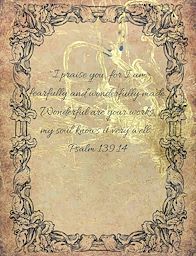 I praise you, for I am
fearfully and wonderfully made.
Wonderful are your works;
my soul knows it very well.
Psalm 139:14